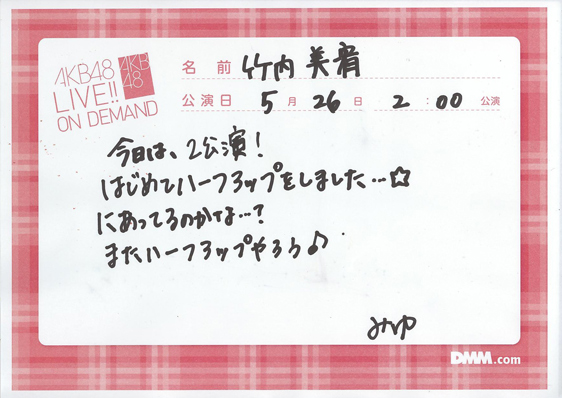 AKB48
LIVE!!
ON DEMAND
AKB
48
名 前 竹内 美宥
公演日 5 月 26 日 2 : 00 公演
今日は、2公演!
はじめてハーフアップをしました...☆
にあってるのかな...?
またハーフアップやろう♪
みゆ
DMM.com